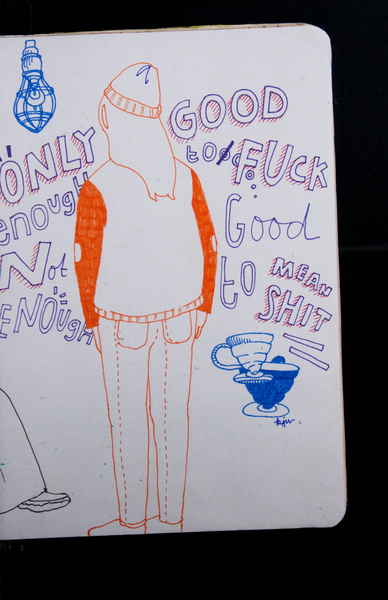 "ONLY
enough
Not
ENOugH
GOOD
to
FUCK
Good
to
MEAN
SHIT